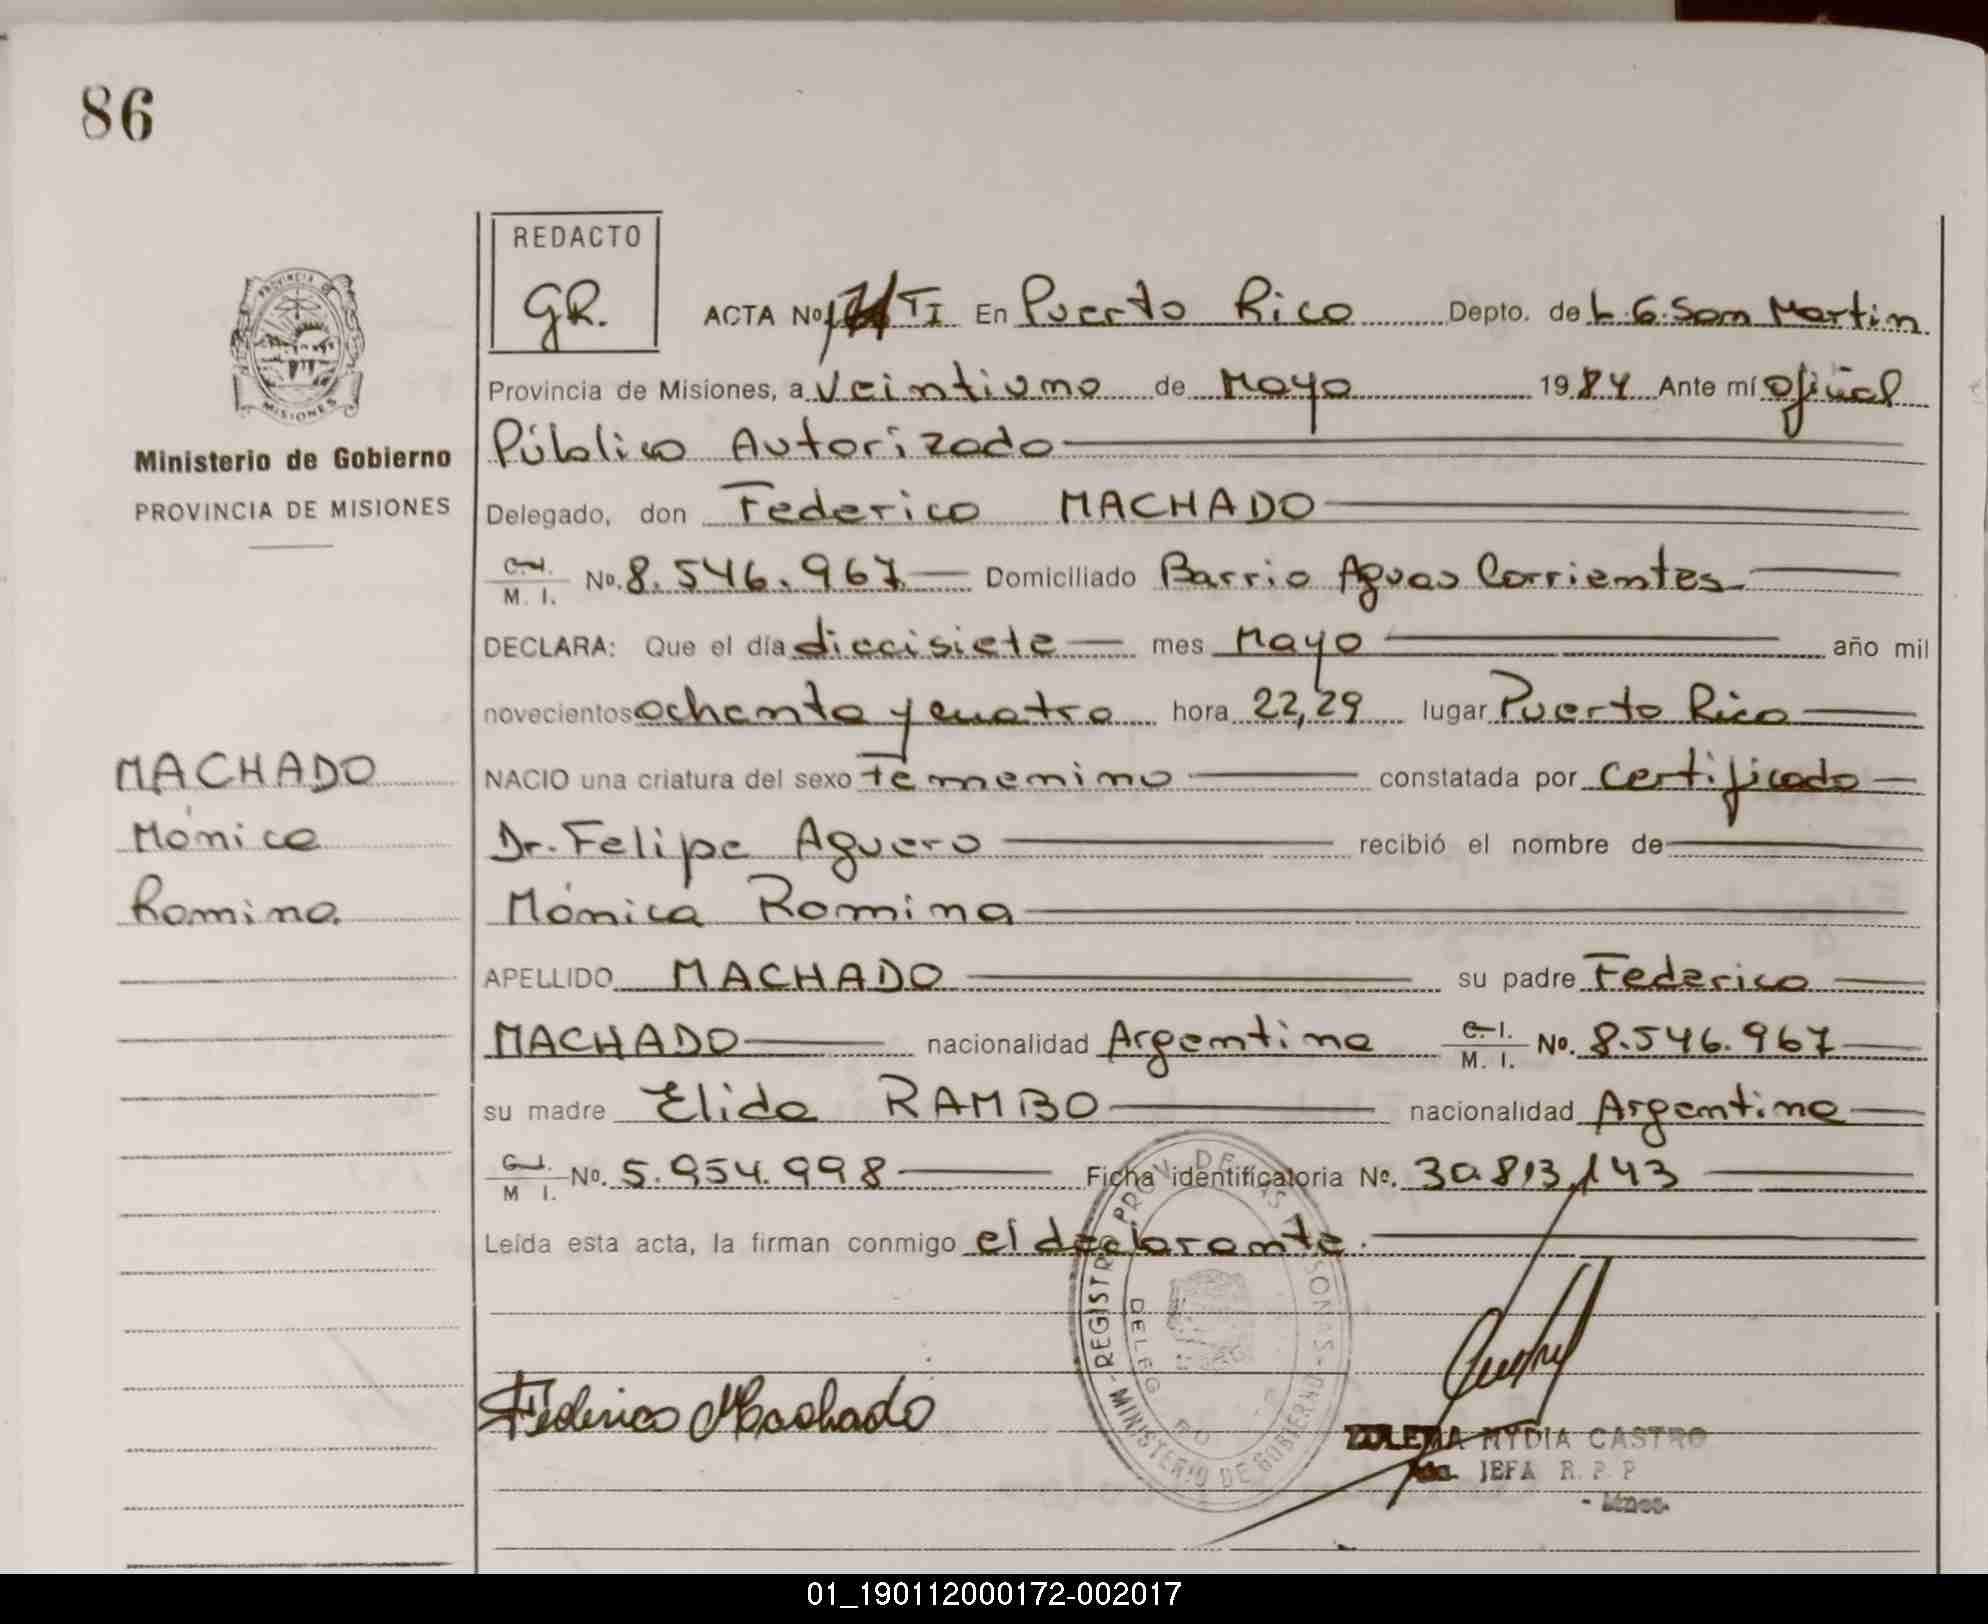 86
REDACTO
GR.
PROVINCIA DE
MISIONES
Ministerio de Gobierno
PROVINCIA DE MISIONES
ACTA No. TI En Puerto Rico Depto. de L. G. San Martin.
Provincia de Misiones, a Veintiuno de Mayo 1984 Ante mí Oficial
Público Autorizado
Delegado, don Federico MACHADO
C. I.
M. I. No. 8.546.967 Domiciliado Barrio Aguas Corrientes
DECLARA: Que el día diecisiete mes Mayo año mil
novecientos ochenta y cuatro hora 22,29 lugar Puerto Rico
NACIO una criatura del sexo Femenino constatada por Certificado
Dr. Felipe Aguero recibió el nombre de
Mónica Romina
APELLIDO MACHADO su padre Federico
MACHADO nacionalidad Argentina C. I.
M. I. No. 8.546.967
su madre Elida RAMBO nacionalidad Argentina
C. I.
M. I. No. 5.954.998 Ficha identificatoria No. 30.813.143
Leída esta acta, la firman conmigo el declarante.
MACHADO
Mónica
Romina.
REGISTRO PROV. DE LAS PERSONAS - MINISTERIO DE GOBIERNO -
DELEG
Federico Machado
ZULEMA NYDIA CASTRO
JEFA R. P. P
- Mnes.
01_190112000172-002017